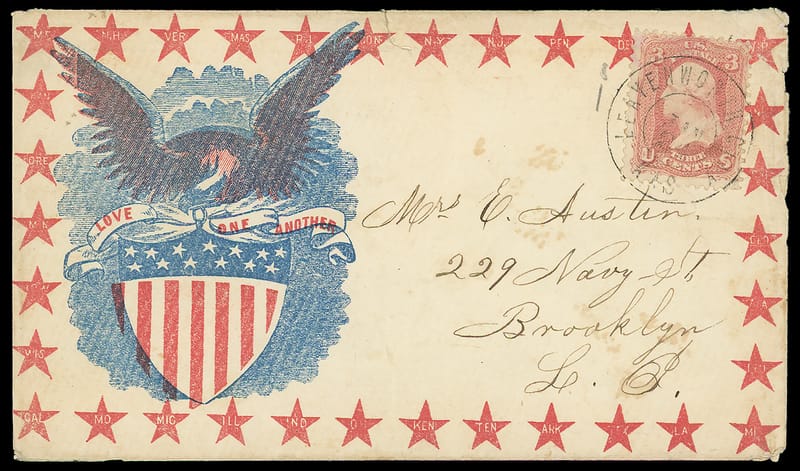 ME N.H VER MAS R.I CON N.Y N.J PEN DE
LOVE ONE ANOTHER
U.S.
3 3
U CENTS S
LEAVENWO
KAS
Mrs E. Austin.
229 Navy St.
Brooklyn
L. I.
ORE
MIN
WIS
CAL MO MIC ILL IND O KEN TEN ARK LA